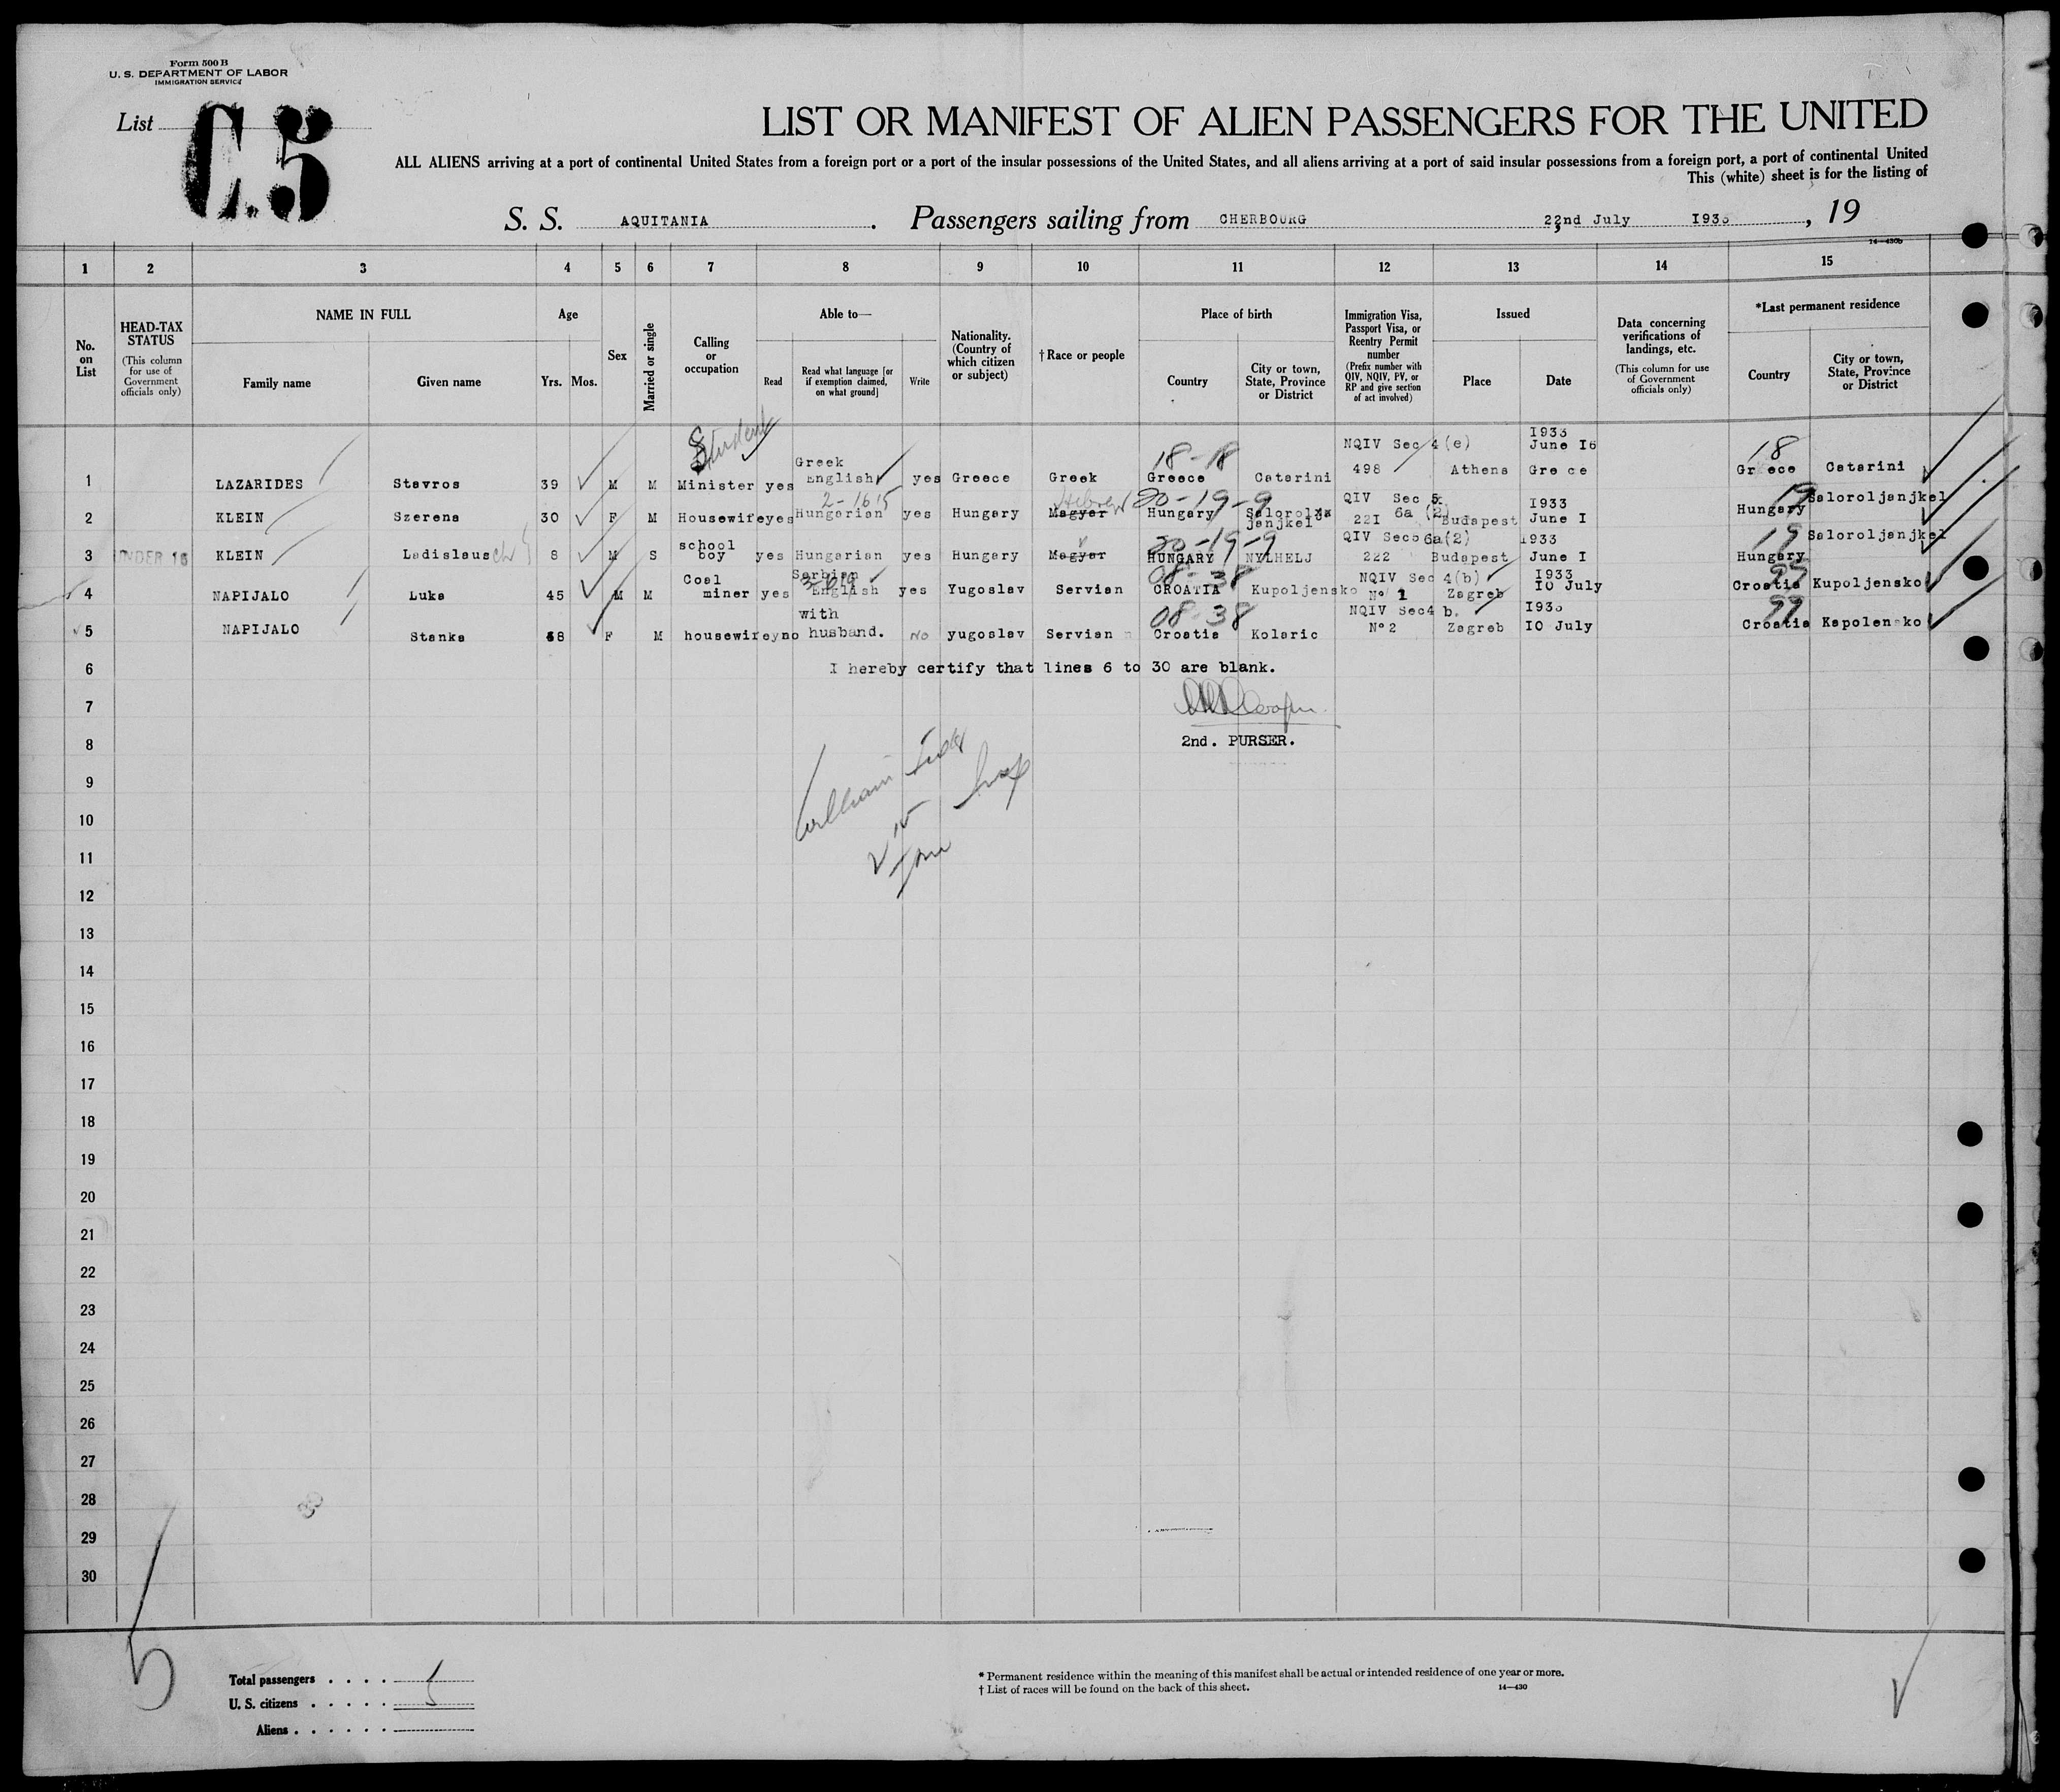 Form 500 B
U. S. DEPARTMENT OF LABOR
IMMIGRATION SERVICE
List C.5
LIST OR MANIFEST OF ALIEN PASSENGERS FOR THE UNITED
ALL ALIENS arriving at a port of continental United States from a foreign port or a port of the insular possessions of the United States, and all aliens arriving at a port of said insular possessions from a foreign port, a port of continental United
This (white) sheet is for the listing of
S. S. AQUITANIA. Passengers sailing from CHERBOURG 22nd July 1933, 19
14—430b
1 2 3 4 5 6 7 8 9 10 11 12 13 14 15
No. on List
HEAD-TAX STATUS
(This column for use of Government officials only)
NAME IN FULL
Family name
Given name
Age
Yrs. Mos.
Sex
Married or single
Calling or occupation
Able to—
Read
Read what language [or if exemption claimed, on what ground]
Write
Nationality. (Country of which citizen or subject)
† Race or people
Place of birth
Country
City or town, State, Province or District
Immigration Visa, Passport Visa, or Reentry Permit number
(Prefix number with QIV, NQIV, PV, or RP and give section of act involved)
Issued
Place
Date
Data concerning verifications of landings, etc.
(This column for use of Government officials only)
*Last permanent residence
Country
City or town, State, Province or District
Student 18-18 NQIV Sec 4(e) I933 June I6 18
1 LAZARIDES Stavros 39 M M Minister yes Greek English yes Greece Greek Greece Catarini 498 Athens Greece Catarini
2-1615 Hebrew 20-19-9 QIV Sec 6a (2) I933 19
2 KLEIN Szerena 30 F M Housewife yes Hungarian yes Hungary Magyar Hungary 22I Budapest June I Hungary Saloroljanjkel
20-19-9 QIV Sec 6a(2) 1933 19
3 UNDER 16 KLEIN Ladislaus ch 8 M S school boy yes Hungarian yes Hungary Magyar HUNGARY NYLHELJ 222 Budapest June I Hungary Saloroljanjkel
08-38 NQIV Sec 4(b) I933 99
4 NAPIJALO Luka 45 M M Coal miner yes Serbian English yes Yugoslav Servian CROATIA Kupoljensko No 1 Zagreb IO July Croatia Kupoljensko
08-38 NQIV Sec4 b. I933 99
5 NAPIJALO Stanka 38 F M housewife no with husband. No yugoslav Servian Croatia Kolaric No 2 Zagreb IO July Croatia Kapolensko
6 I hereby certify that lines 6 to 30 are blank.
7
8 2nd. PURSER.
9
10
11
12
13
14
15
16
17
18
19
20
21
22
23
24
25
26
27
28
29
30
5
Total passengers . . . . 5
U. S. citizens . . . . .
Aliens . . . . . .
* Permanent residence within the meaning of this manifest shall be actual or intended residence of one year or more.
† List of races will be found on the back of this sheet.
14—430